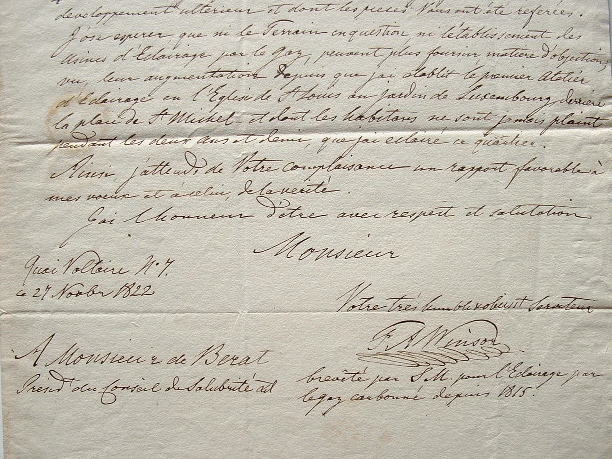 developpement ulterieur et dont les pieces Vous ont été referées.
J'ose esperer que ni le Terrain en question ni l'établissement des
Usines d'Eclairage par le Gaz, peuvent plus fournir matière d'objection,
vu, leur augmentation depuis que j'ai établit le premier Atelier
d'Eclairage en l'Eglise de St Louis au jardin de Luxembourg derrière
la place de St Michel et dont les habitans ne se sont jamais plaint
pendant les deux ans et demi, que j'ai eclairé ce quartier.
Ainsi, j'attends de Votre complaisance un rapport favorable à
mes voeux et à celui, de la verité.
J'ai l'honneur d'être avec respect et salutation
Monsieur
Quai Voltaire No 7.
ce 27 Novbr 1822
Votre très humble & obeist Serviteur
A Monsieur de Berat
F. A. Winsor
Presidt du Conseil de Salubrité &tt
breveté par S. M. pour l'Eclairage par
le gaz carboné depuis 1815.